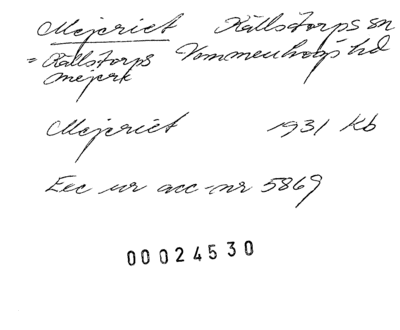 Mejeriet Källstorps sn
= Källstorps Vemmenhögs hd
mejeri
Mejeriet 1931 Kb
Exc ur acc-nr 5869
00024530